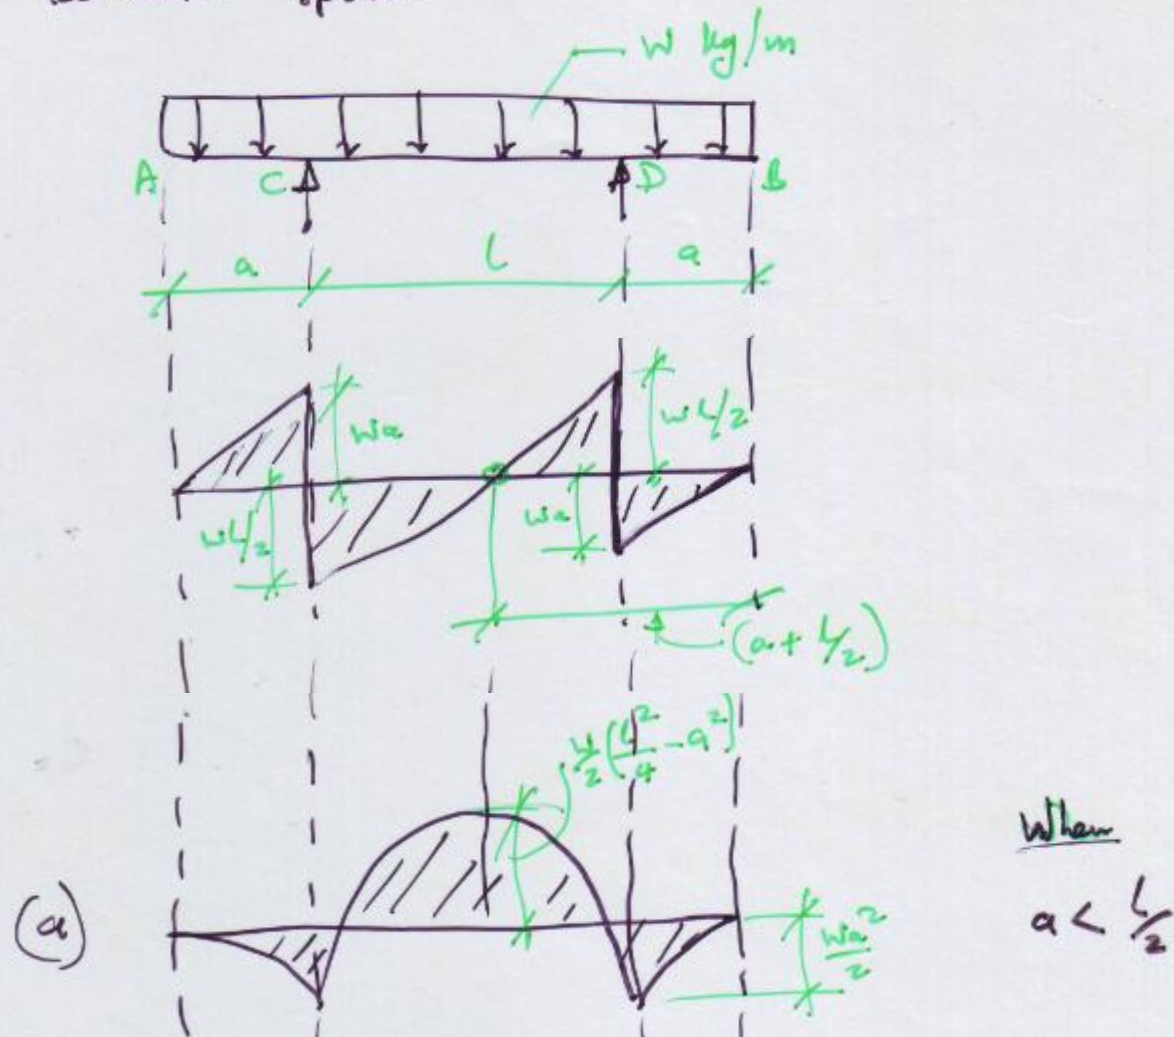 w kg/m
A C D B
a l a
wa
wl/2
wl/2
wa
(a + l/2)
w/2 (l²/4 - a²)
(a)
wa²/2
When
a < l/2